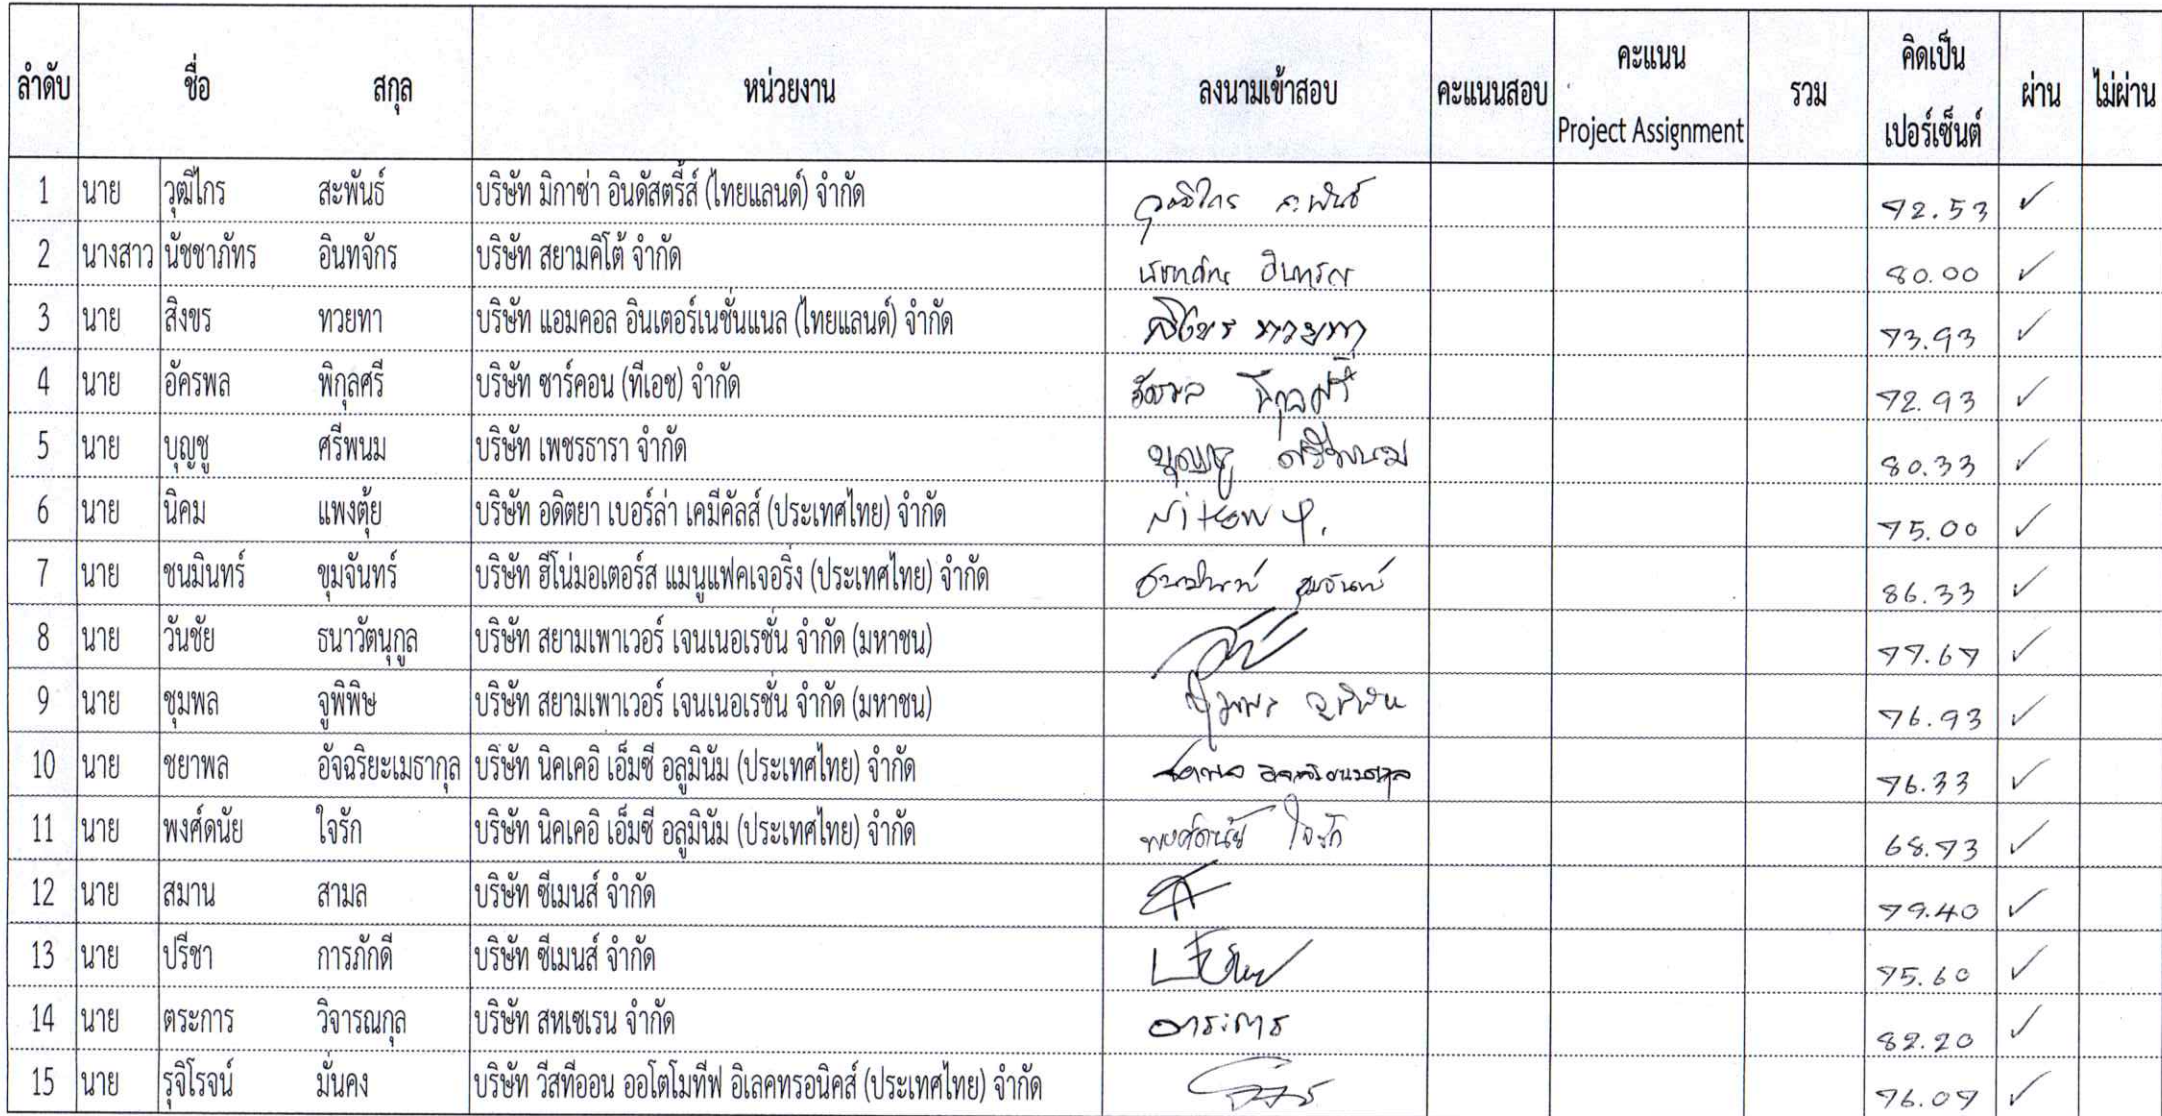 ลำดับ ชื่อ สกุล หน่วยงาน ลงนามเข้าสอบ คะแนนสอบ คะแนน Project Assignment รวม คิดเป็น เปอร์เซ็นต์ ผ่าน ไม่ผ่าน
1 นาย วุฒิไกร สะพันธ์ บริษัท มิกาซ่า อินดัสตรี้ส์ (ไทยแลนด์) จำกัด วุฒิไกร สะพันธ์ 72.53 ✓
2 นางสาว นัชชาภัทร อินทจักร บริษัท สยามคิโต้ จำกัด 80.00 ✓
3 นาย สิงขร ทวยทา บริษัท แอมคอล อินเตอร์เนชั่นแนล (ไทยแลนด์) จำกัด สิงขร ทวยทา 73.93 ✓
4 นาย อัครพล พิกุลศรี บริษัท ชาร์คอน (ทีเอช) จำกัด อัครพล พิกุลศรี 72.93 ✓
5 นาย บุญชู ศรีพนม บริษัท เพชรธารา จำกัด บุญชู ศรีพนม 80.33 ✓
6 นาย นิคม แพงตุ้ย บริษัท อดิตยา เบอร์ล่า เคมีคัลส์ (ประเทศไทย) จำกัด 75.00 ✓
7 นาย ชนมินทร์ ขุมจันทร์ บริษัท ฮีโน่มอเตอร์ส แมนูแฟคเจอริ่ง (ประเทศไทย) จำกัด 86.33 ✓
8 นาย วันชัย ธนาวัตนุกูล บริษัท สยามเพาเวอร์ เจนเนอเรชั่น จำกัด (มหาชน) 77.67 ✓
9 นาย ชุมพล จูพิพิษ บริษัท สยามเพาเวอร์ เจนเนอเรชั่น จำกัด (มหาชน) 76.93 ✓
10 นาย ชยาพล อัจฉริยะเมธากุล บริษัท นิคเคอิ เอ็มซี อลูมินัม (ประเทศไทย) จำกัด 76.33 ✓
11 นาย พงศ์ดนัย ใจรัก บริษัท นิคเคอิ เอ็มซี อลูมินัม (ประเทศไทย) จำกัด พงศ์ดนัย ใจรัก 68.73 ✓
12 นาย สมาน สามล บริษัท ซีเมนส์ จำกัด 79.40 ✓
13 นาย ปรีชา การภักดี บริษัท ซีเมนส์ จำกัด 75.60 ✓
14 นาย ตระการ วิจารณกุล บริษัท สหเซเรน จำกัด ตระการ 82.20 ✓
15 นาย รุจิโรจน์ มั่นคง บริษัท วีสทีออน ออโตโมทีฟ อิเลคทรอนิคส์ (ประเทศไทย) จำกัด 76.07 ✓